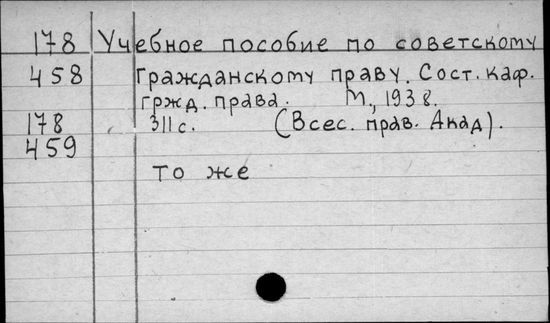 178 Учебное пособие по советскому
458 Гражданскому праву. Сост. каф.
гржд. права. М., 1938.
178 311 с. (Всес. прав. Акад).
459
То же